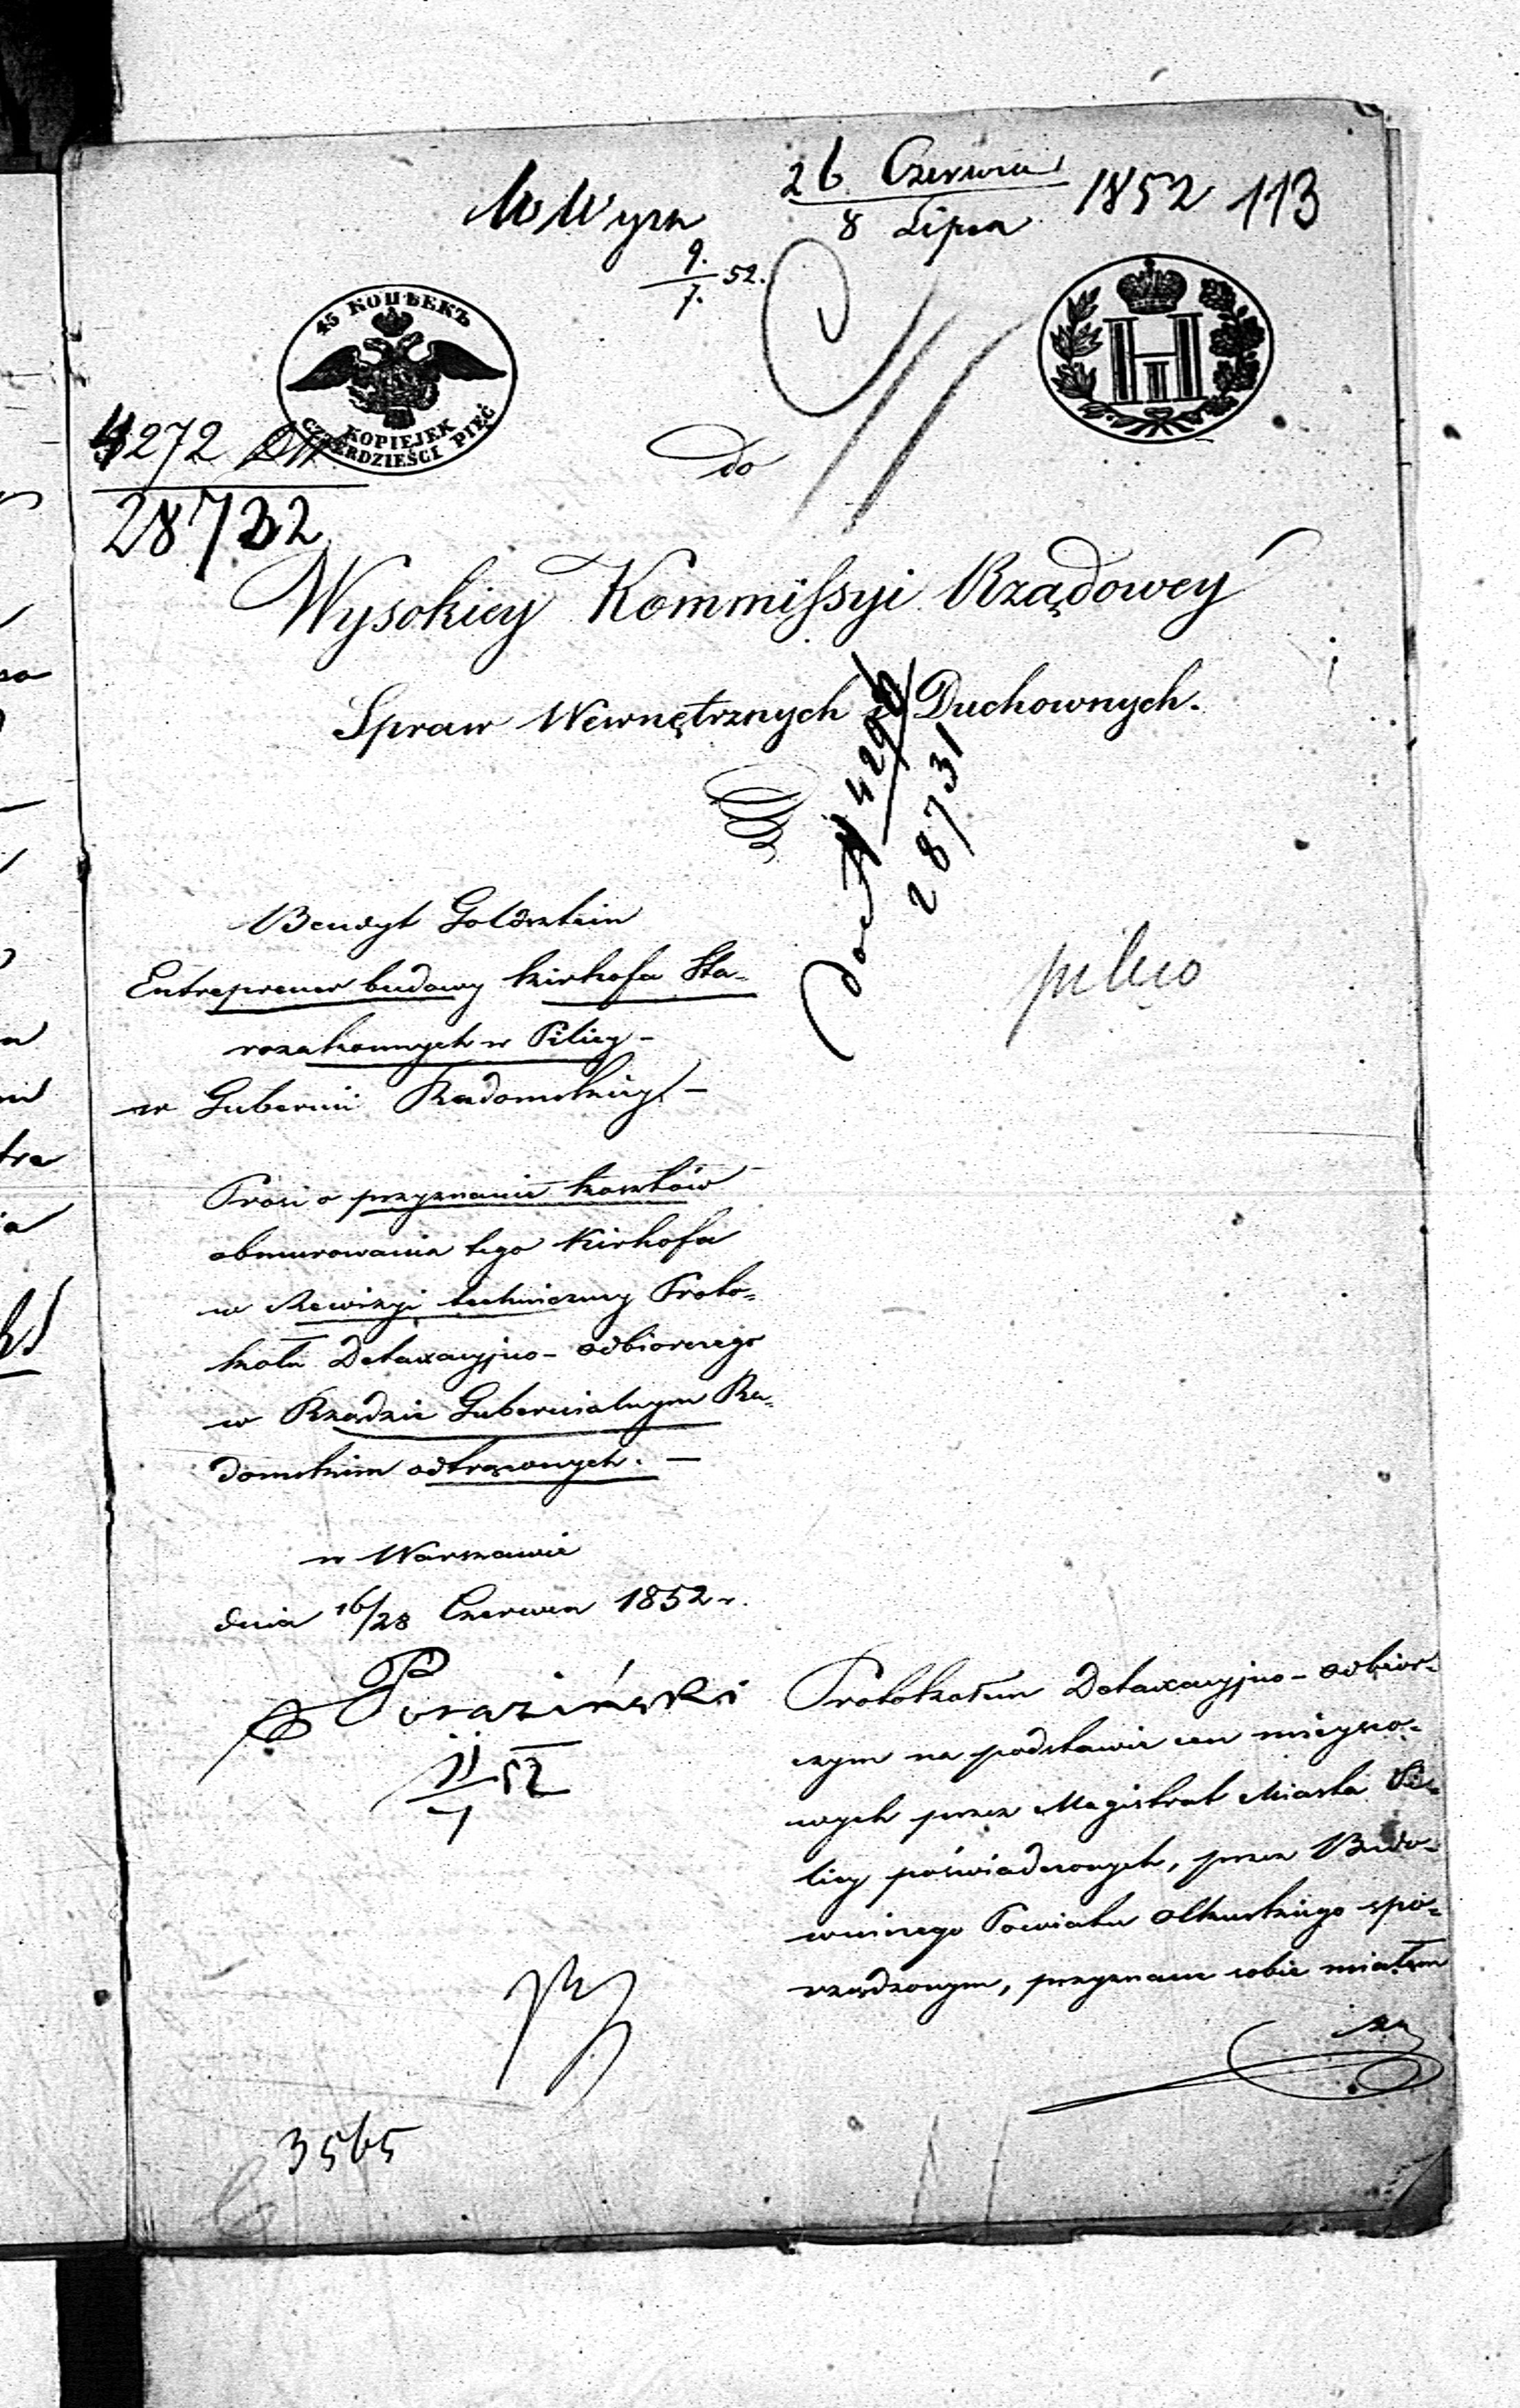 26 Czerwca 1852 113
8 Lipca
9./7. 52.
45 КОПѢЕКЪ
KOPIEJEK
CZTERDZIEŚCI PIĘĆ
4272
28732
do
Wysokiey Kommissyi Rządowey
Spraw Wewnętrznych i Duchownych.
4296
28731
Bendyt Goldsztein
Entreprener budowy kirkofa Sta-
rozakonnych w Pilicy -
w Gubernii Radomskiey. -
pilno
Prosi o przyznanie kosztów
obmurowania tego Kirkofa
w Rewizyi techniczney Proto-
kołu Detaxacyjno - odbiorczego
w Rządzie Gubernialnym Ra-
domskim odtrąconych. -
w Warszawie
dnia 16/28 Czerwca 1852 r.
52
Protokołem Detaxacyjno - odbior-
czym na podstawie cen mieysco-
wych przez Magistrat Miasta Pi-
licy poświadczonych, przez Budo-
wniczego Powiatu Olkuskiego spo-
rządzonym, przyznane sobie miałem
3565